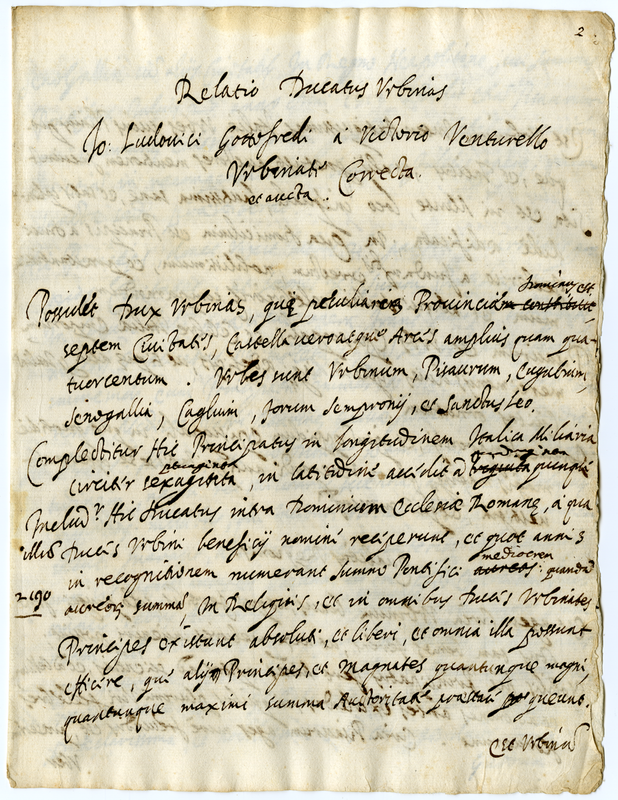 2
Relatio Ducatus Urbinas
Jo: Ludovici Gottofredi à Victorio Venturello
Urbinati Correcta.
et aucta.
dominus est
Possidet Dux Urbinas, quę peculiarem Provinciam constituit
septem Civitates, Castella vero atque Arces amplius quam qua-
tuorcentum. Urbes sunt Urbinum, Pisaurum, Eugubium,
Senogallia, Callium, forum sempronij, et Sanctus Leo.
Complectitur Hic Principatus in longitudinem Italica Miliaria
circiter sexaginta, in latitudine accedit ad triginta quinque
Includr Hic Ducatus intra Dominium Ecclesiæ Romanę, à qua
illud Duces Urbini beneficij nomine recipiunt, et quot annis
mediocrem
in recognitionem numerant summo Pontifici aureos:
2190
aureorum summa, In Religiis, et in omnibus Duces Urbinates
Principes existunt absoluti, et liberi, et omnia illa possunt
efficere, quę alij Principes, et magnates quantunque magni
quantunque maximi summa Autoritate pręstare queunt.
Est Urbinum